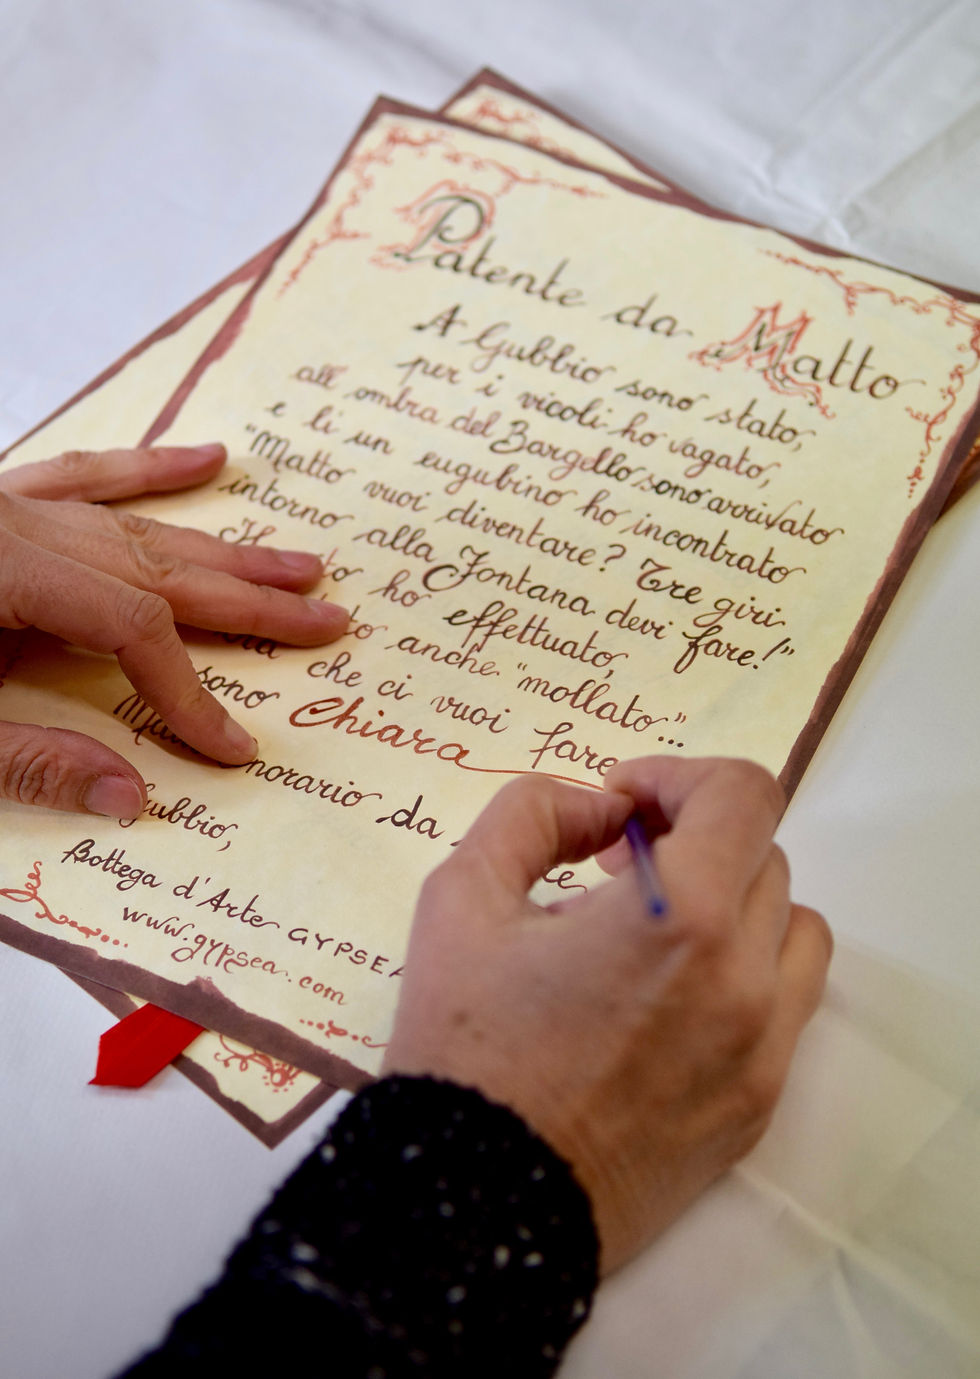 Patente da Matto
A Gubbio sono stato,
per i vicoli ho vagato,
all'ombra del Bargello sono arrivato
e lì un eugubino ho incontrato
"Matto vuoi diventare? Tre giri
intorno alla Fontana devi fare!"
ho effettuato,
anche "mollato..."
che ci vuoi fare
sono Chiara
norario da
Gubbio,
Bottega d'Arte GYPSEA
www.gypsea.com